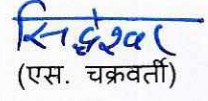 सिद्धेश्वर
(एस. चक्रवर्ती)